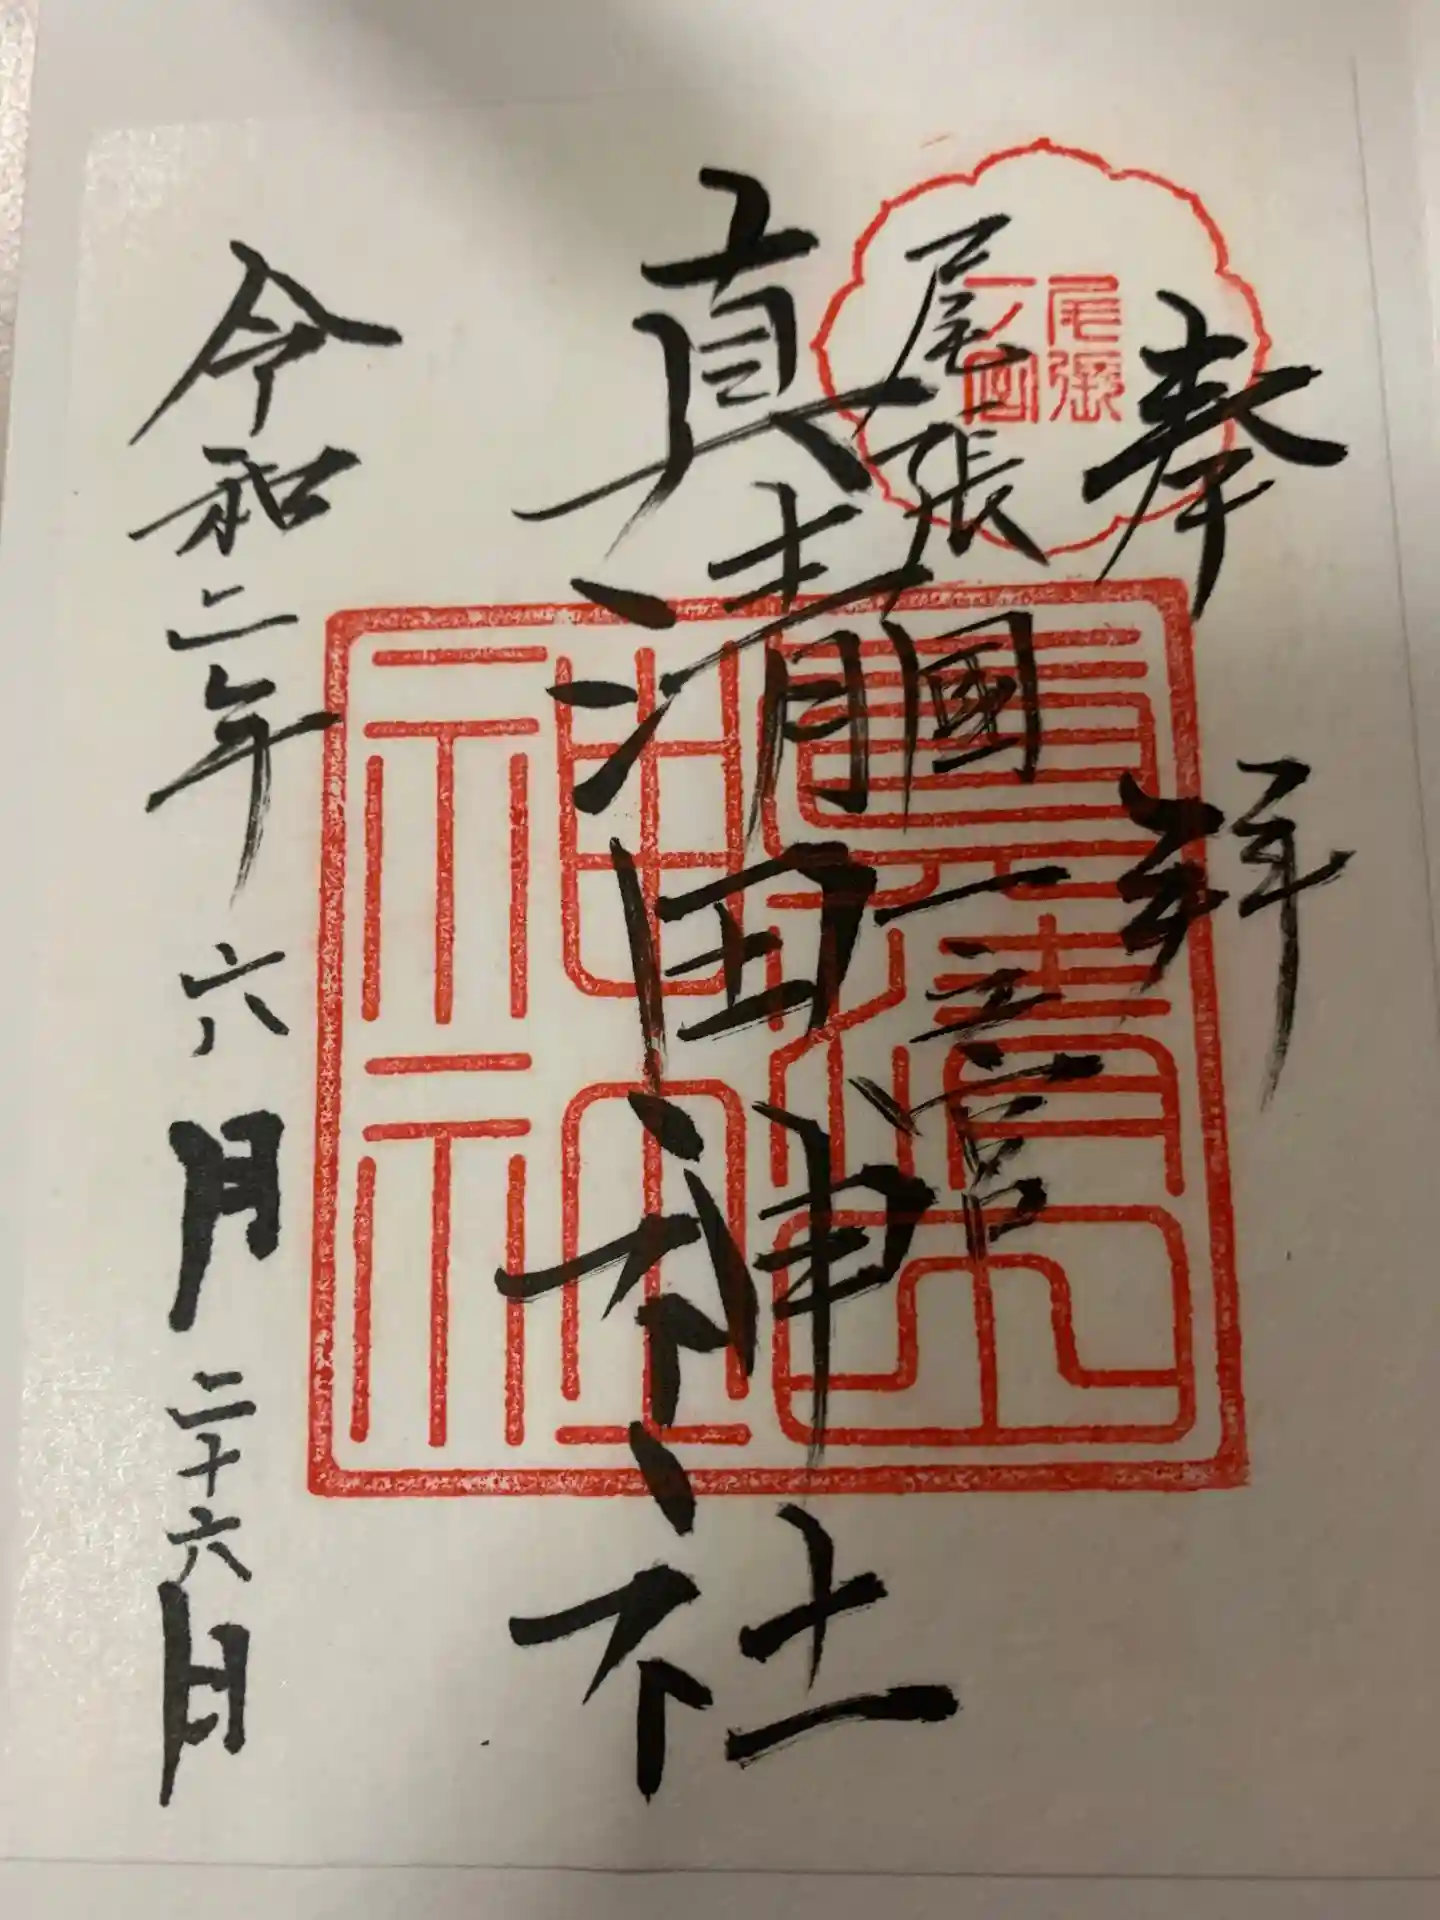 奉拝
尾張國一之宮
真清田神社
令和二年六月二十六日
尾張
一ノ宮
真清田
神社